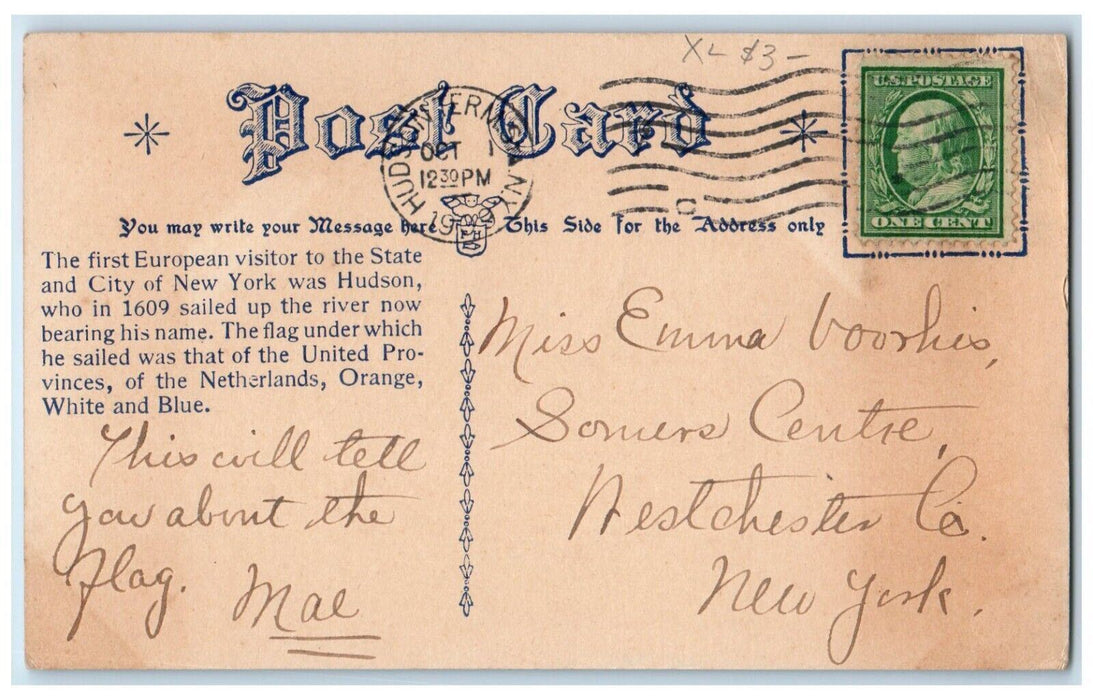 XL $3-
Post Card
U.S. POSTAGE
ONE CENT
HUDSON TERM STA. N.Y.
OCT 1
12 30 PM
You may write your Message here
This Side for the Address only
The first European visitor to the State
and City of New York was Hudson,
who in 1609 sailed up the river now
bearing his name. The flag under which
he sailed was that of the United Pro-
vinces, of the Netherlands, Orange,
White and Blue.
This will tell
you about the
flag.
Mae
Miss Emma Voorhis,
Somers Centre,
Westchester Co.
New York.